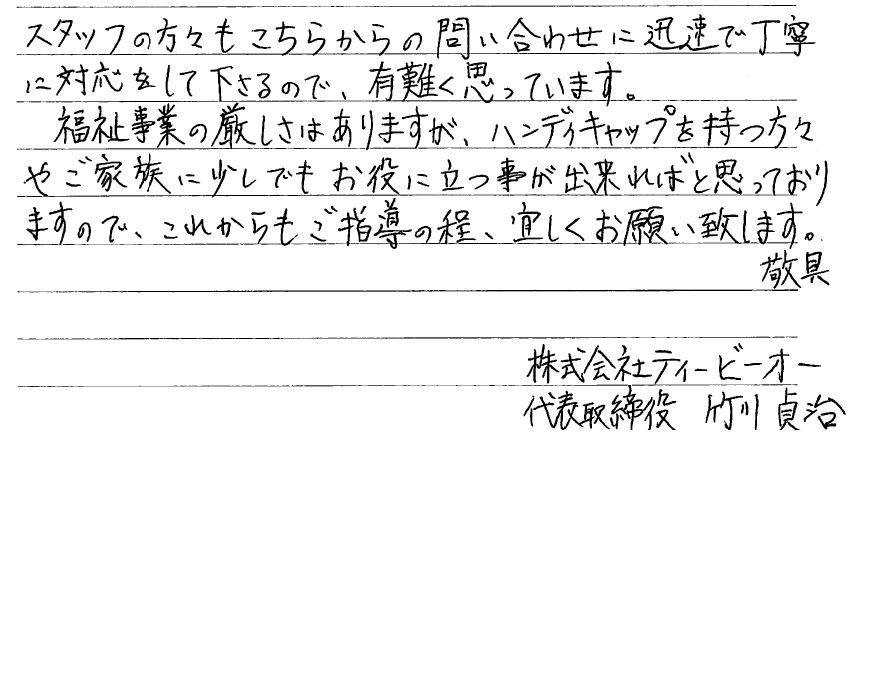 スタッフの方々もこちらからの問い合わせに迅速で丁寧
に対応をして下さるので、有難く思っています。
福祉事業の厳しさはありますが、ハンディキャップを持つ方々
やご家族に少しでもお役に立つ事が出来ればと思っており
ますので、これからもご指導の程、宜しくお願い致します。
敬具
株式会社ティービーオー
代表取締役 竹川 貞治